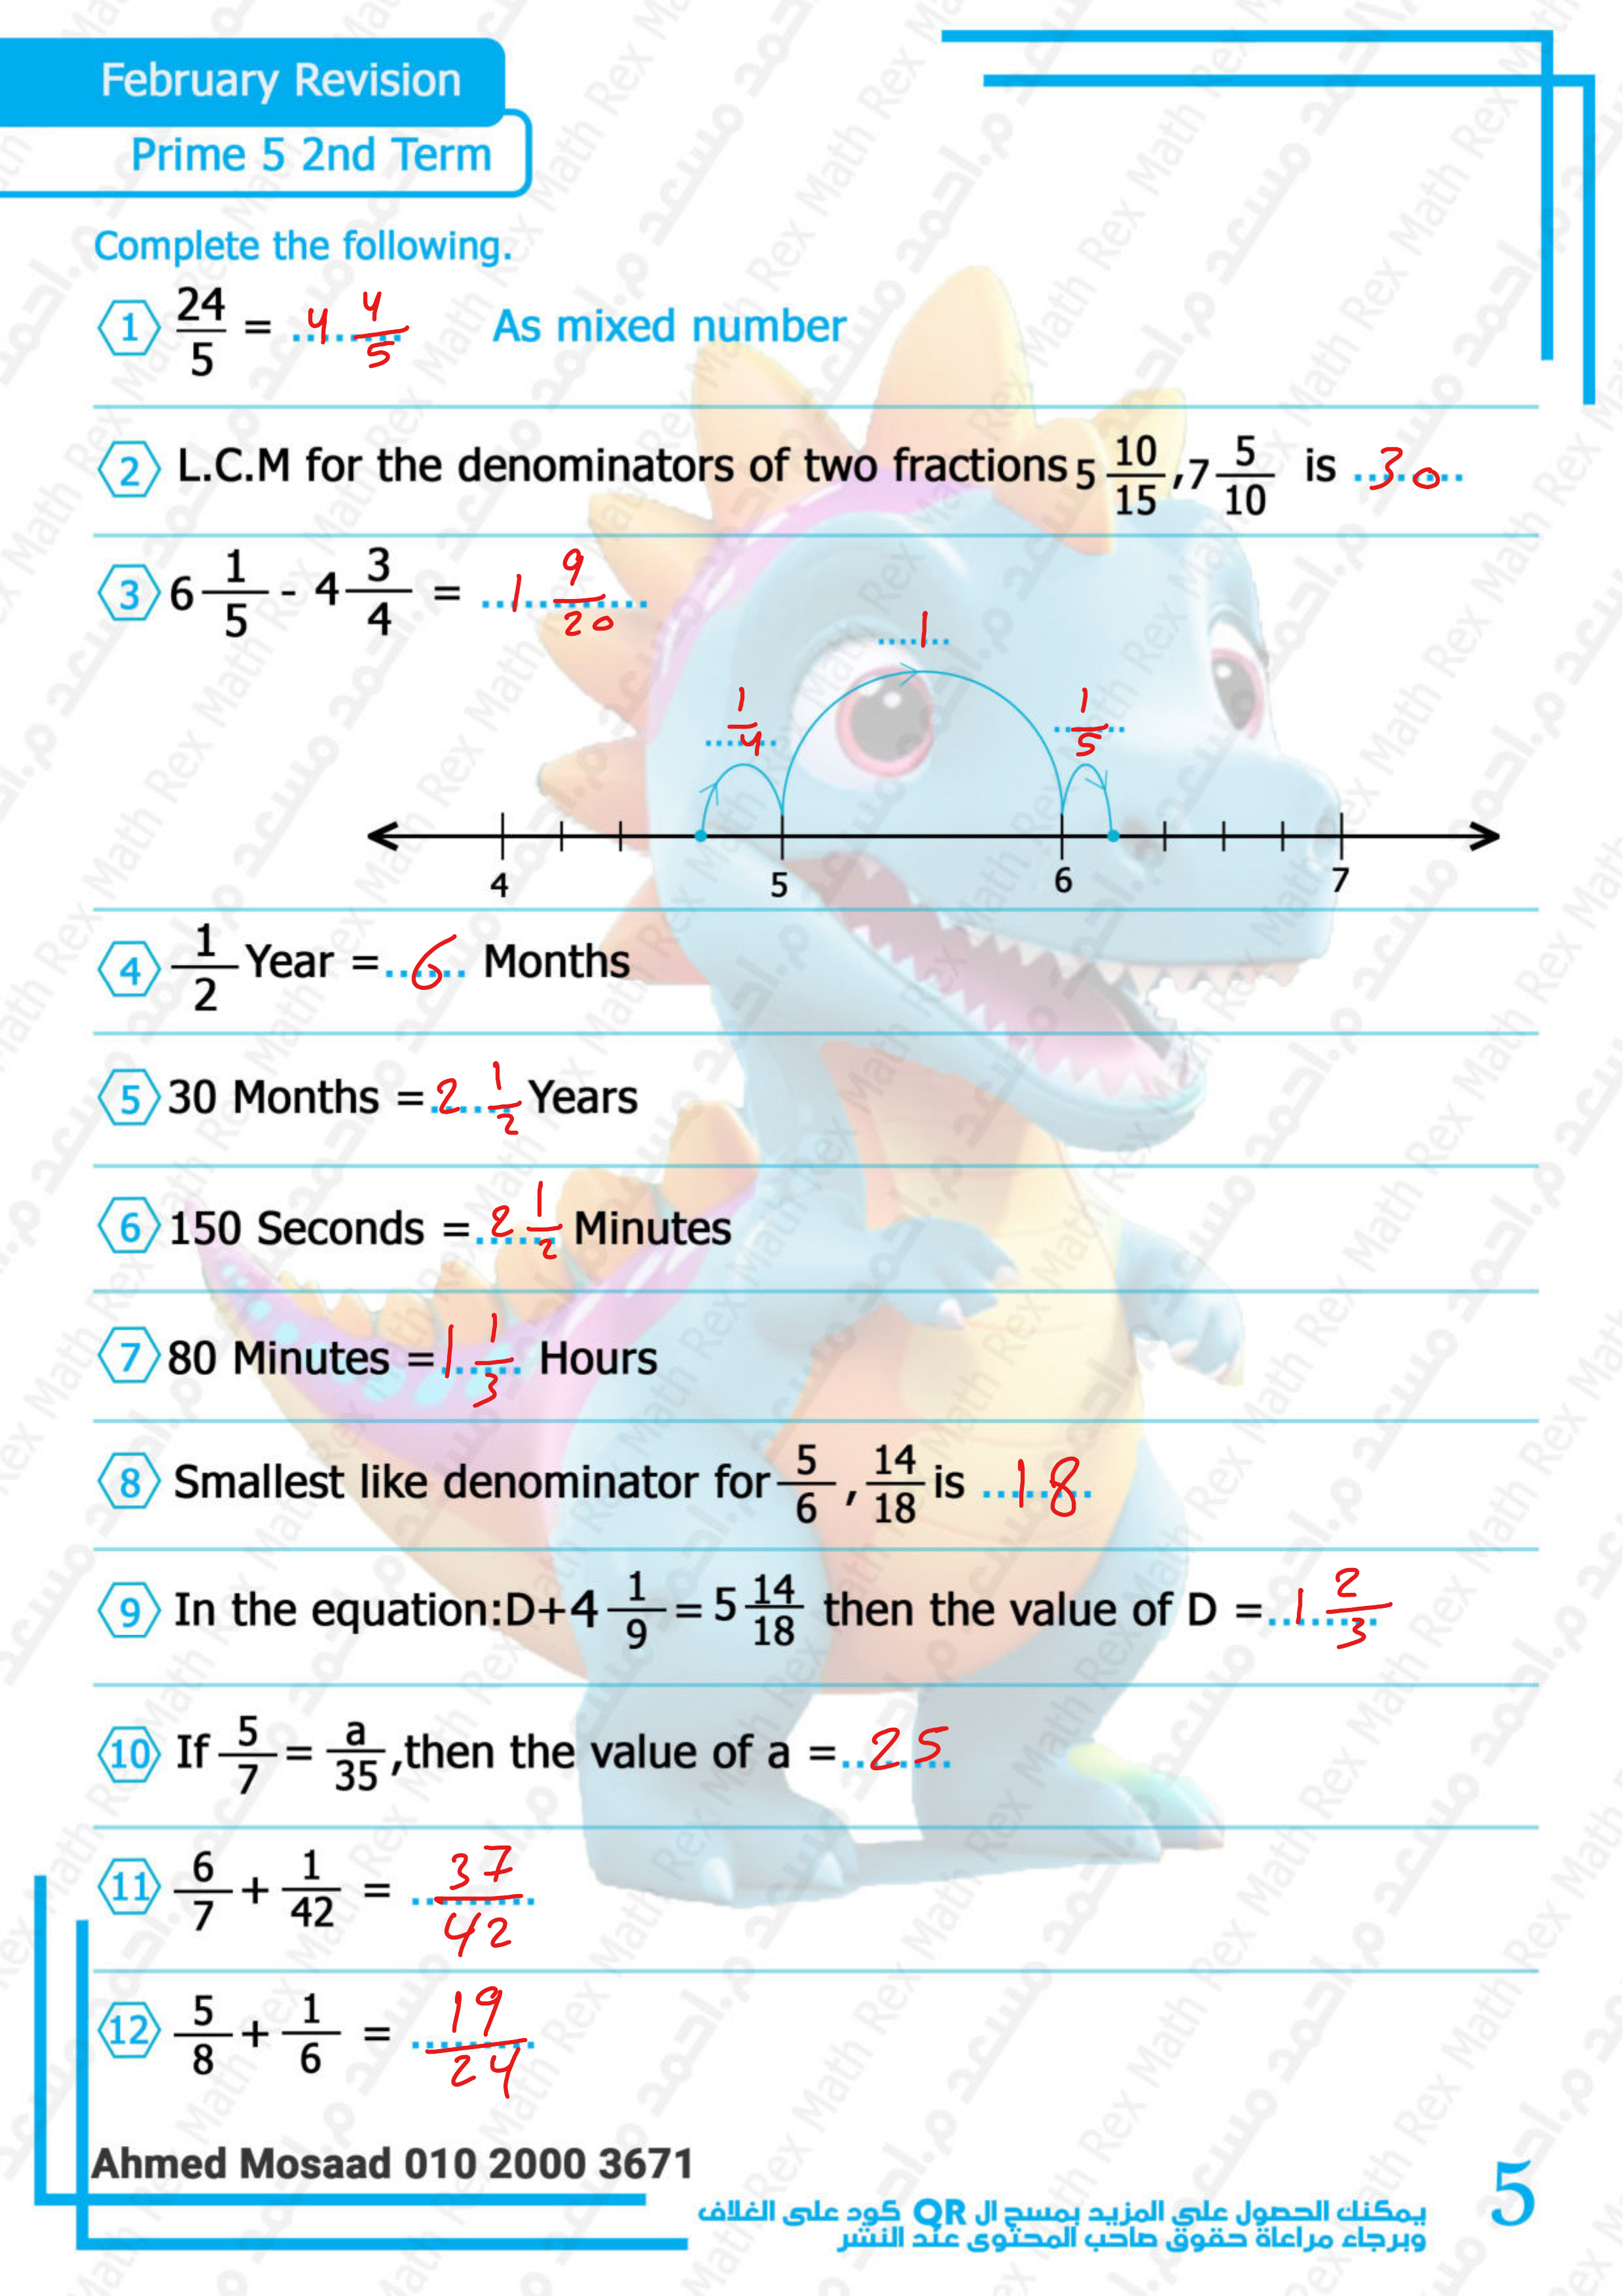 February Revision
Prime 5 2nd Term
Complete the following.
1 24/5 = 4 4/5 As mixed number
2 L.C.M for the denominators of two fractions 5 10/15 ,7 5/10 is 30
3 6 1/5 - 4 3/4 = 1 9/20
1
1/4 1/5
4 5 6 7
4 1/2 Year =...6... Months
5 30 Months =2 1/2 Years
6 150 Seconds =2 1/2 Minutes
7 80 Minutes =1 1/3 Hours
8 Smallest like denominator for 5/6 , 14/18 is 18
9 In the equation:D+4 1/9 = 5 14/18 then the value of D =1 2/3
10 If 5/7 = a/35 ,then the value of a =25
11 6/7 + 1/42 = 37/42
12 5/8 + 1/6 = 19/24
Ahmed Mosaad 010 2000 3671
يمكنك الحصول على المزيد بمسح ال QR كود على الغلاف
وبرجاء مراعاة حقوق صاحب المحتوى عند النشر
5
Math Rex م.احمد مسعد